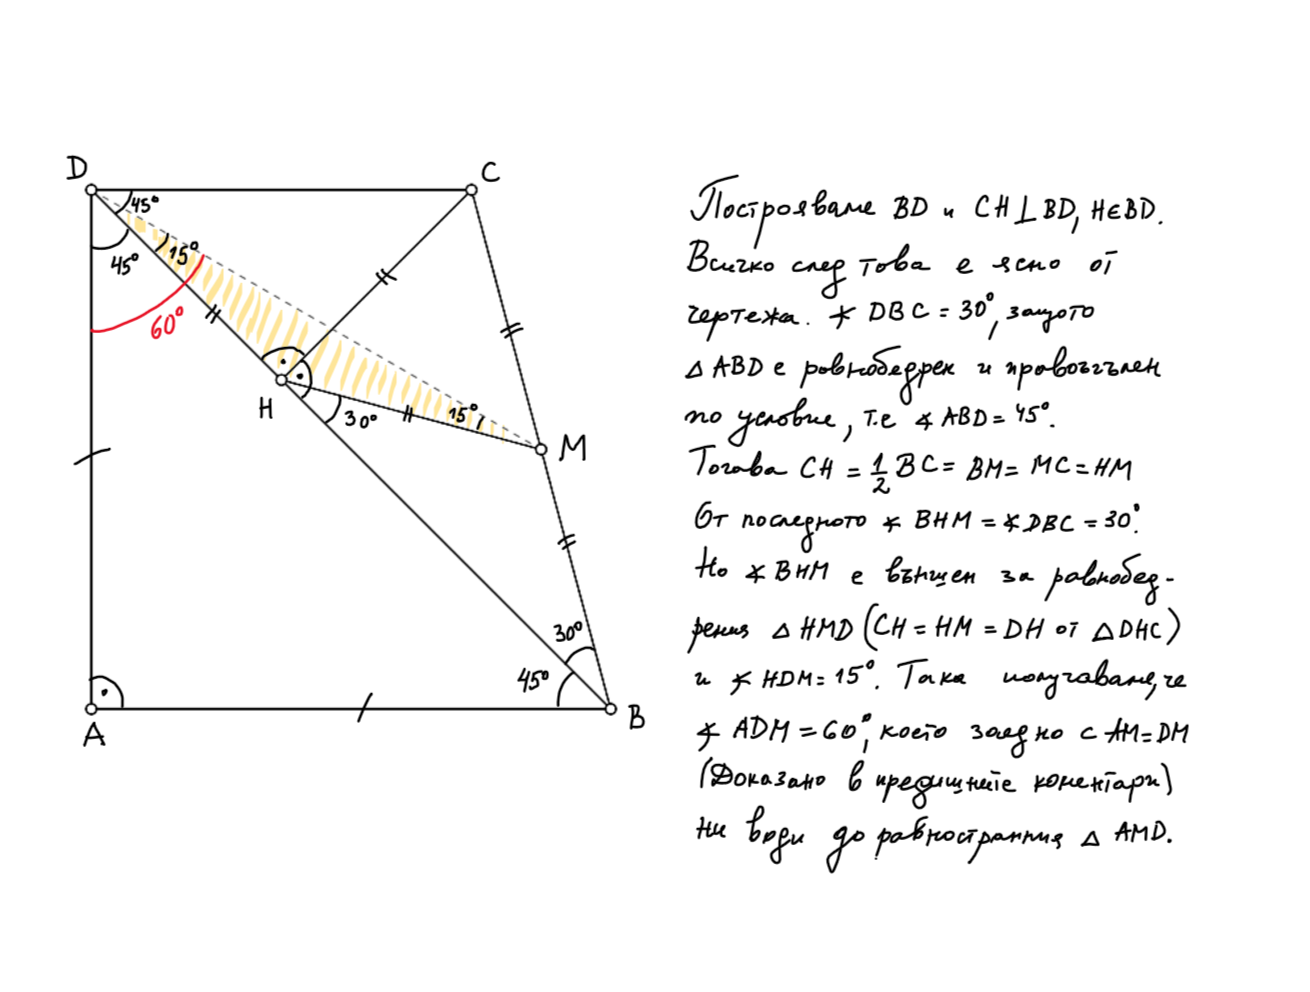 D
C
45°
45°
15°
60°
H
30°
15°
M
30°
45°
A
B
Построяваме BD и CH⊥BD, H∈BD.
Всичко след това е ясно от
чертежа. ∡ DBC = 30°, защото
△ ABD е равнобедрен и правоъгълен
по условие, т.е ∡ ABD = 45°.
Тогава CH = 1/2 BC = BM = MC = HM
От последното ∡ BHM = ∡ DBC = 30°.
Но ∡ BHM е външен за равнобед-
рения △ HMD (CH = HM = DH от △DHC)
и ∡ HDM = 15°. Така получаваме, че
∡ ADM = 60°, което заедно с AM = DM
(Доказано в предишните коментари)
ни води до равностранния △ AMD.